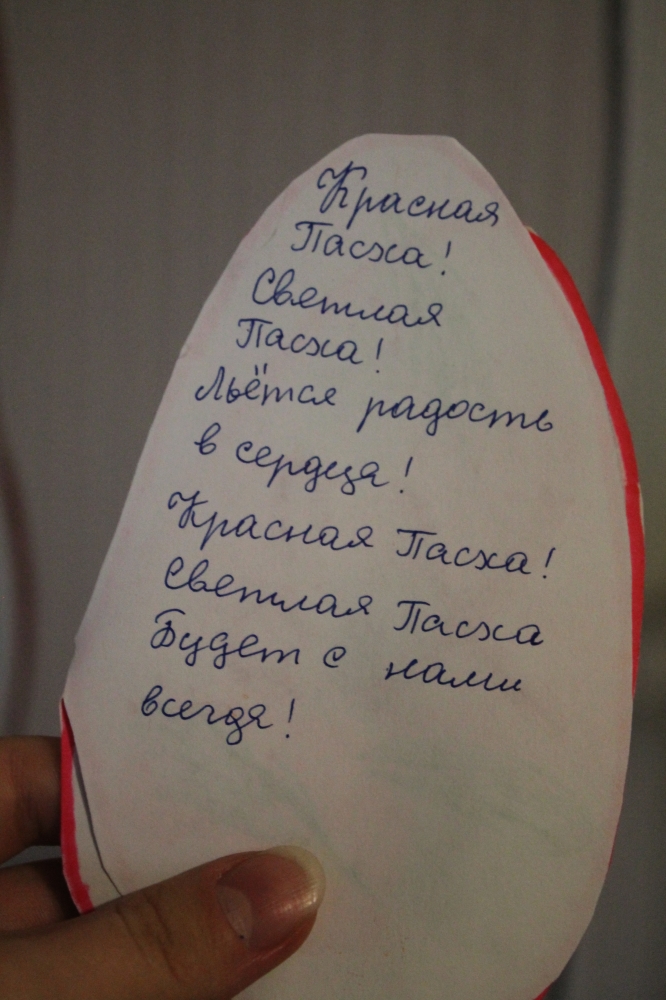 Красная
Пасха!
Светлая
Пасха!
Льётся радость
в сердца!
Красная Пасха!
Светлая Пасха
Будет с нами
всегда!